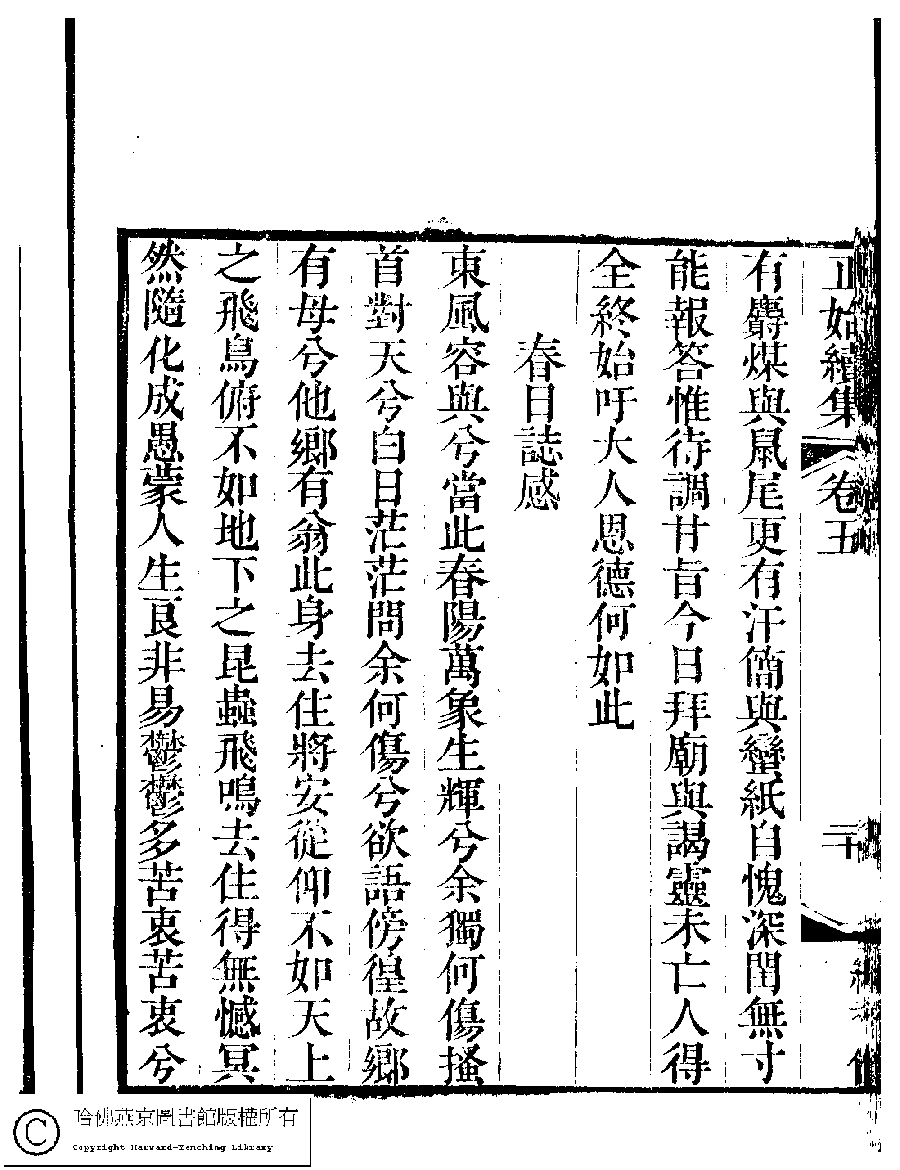 正始續集 卷五 二十
有麝煤與鼠尾更有汗簡與蠻紙自愧深閨無寸
能報答惟待調甘旨今日拜廟與謁靈未亡人得
全終始吁大人恩德何如此
春日誌感
東風容與兮當此春陽萬象生輝兮余獨何傷搔
首對天兮白日茫茫問余何傷兮欲語傍徨故鄉
有母兮他鄉有翁此身去住將安從仰不如天上
之飛鳥俯不如地下之昆蟲飛鳴去住得無憾冥
然隨化成愚蒙人生良非易鬱鬱多苦衷苦衷兮
哈佛燕京圖書館版權所有
Copyright Harvard-Yenching Library